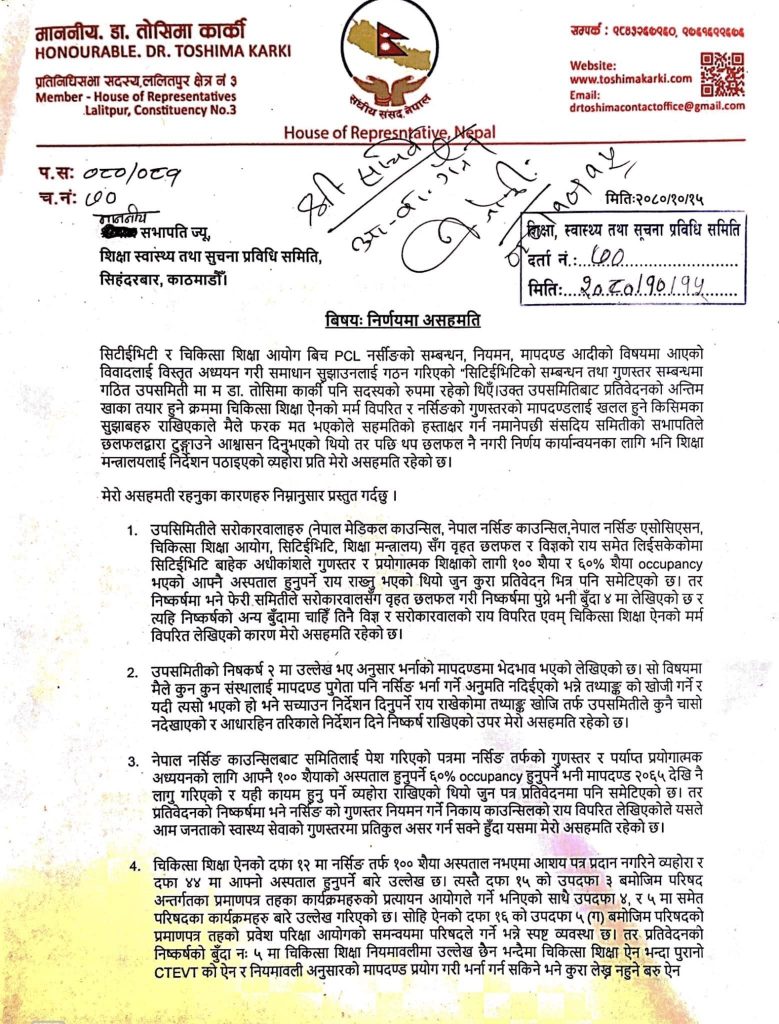 माननीय. डा. तोसिमा कार्की
HONOURABLE. DR. TOSHIMA KARKI
प्रतिनिधिसभा सदस्य,ललितपुर क्षेत्र नं ३
Member - House of Representatives
Lalitpur, Constituency No.3
संघीय संसद, नेपाल
House of Represntative, Nepal
सम्पर्क : ९८४३२६७१६०, ९७६१६९९६७६
Website:
www.toshimakarki.com
Email:
drtoshimacontactoffice@gmail.com
प.स: ०८०/०८१
च.नं: ७०
श्री सचिव
मिति:२०८०/१०/१५
माननीय
सभापति ज्यू,
शिक्षा स्वास्थ्य तथा सुचना प्रविधि समिति,
सिहंदरबार, काठमाडौँ।
शिक्षा, स्वास्थ्य तथा सूचना प्रविधि समिति
दर्ता नं.: ७०
मिति:. २०८०/१०/१५
बिषयः निर्णयमा असहमति
सिटीईभिटी र चिकित्सा शिक्षा आयोग बिच PCL नर्सीङको सम्बन्धन, नियमन, मापदण्ड आदीको विषयमा आएको
विवादलाई विस्तृत अध्ययन गरी समाधान सुझाउनलाई गठन गरिएको “सिटिईभिटिको सम्बन्धन तथा गुणस्तर सम्बन्धमा
गठित उपसमिती मा म डा. तोसिमा कार्की पनि सदस्यको रुपमा रहेको थिएँ।उक्त उपसमितिबाट प्रतिवेदनको अन्तिम
खाका तयार हुने क्रममा चिकित्सा शिक्षा ऐनको मर्म विपरित र नर्सिङको गुणस्तरको मापदण्डलाई खलल हुने किसिमका
सुझाबहरु राखिएकाले मैले फरक मत भएकोले सहमतिको हस्ताक्षर गर्न नमानेपछी संसदिय समितीको सभापतिले
छलफलद्वारा टुङ्गाउने आश्वासन दिनुभएको थियो तर पछि थप छलफल नै नगरी निर्णय कार्यान्वयनका लागि भनि शिक्षा
मन्त्रालयलाई निर्देशन पठाइएको व्यहोरा प्रति मेरो असहमति रहेको छ।
मेरो असहमती रहनुका कारणहरु निम्नानुसार प्रस्तुत गर्दछु ।
1. उपसमितीले सरोकारवालाहरु (नेपाल मेडिकल काउन्सिल, नेपाल नर्सिङ काउन्सिल,नेपाल नर्सिङ एसोसिएसन,
चिकित्सा शिक्षा आयोग, सिटिईभिटि, शिक्षा मन्त्रालय) सँग वृहत छलफल र विज्ञको राय समेत लिईसकेकोमा
सिटिईभिटि बाहेक अधीकांशले गुणस्तर र प्रयोगात्मक शिक्षाको लागी १०० शैया र ६०% शैया occupancy
भएको आफ्नै अस्पताल हुनुपर्ने राय राख्नु भएको थियो जुन कुरा प्रतिवेदन भित्र पनि समेटिएको छ। तर
निष्कर्षमा भने फेरी समितीले सरोकारवालसँग वृहत छलफल गरी निष्कर्षमा पुग्ने भनी बुँदा ४ मा लेखिएको छ र
त्यहि निष्कर्षको अन्य बुँदामा चाहिँ तिनै विज्ञ र सरोकारवालको राय विपरित एवम् चिकित्सा शिक्षा ऐनको मर्म
विपरित लेखिएको कारण मेरो असहमति रहेको छ।
2. उपसमितीको निषकर्ष २ मा उल्लेख भए अनुसार भर्नाको मापदण्डमा भेदभाव भएको लेखिएको छ। सो विषयमा
मैले कुन कुन संस्थालाई मापदण्ड पुगेता पनि नर्सिङ भर्ना गर्ने अनुमति नदिईएको भन्ने तथ्याङ्क को खोजी गर्ने र
यदी त्यसो भएको हो भने सच्याउन निर्देशन दिनुपर्ने राय राखेकोमा तथ्याङ्क खोजि तर्फ उपसमितीले कुनै चासो
नदेखाएको र आधारहिन तरिकाले निर्देशन दिने निष्कर्ष राखिएको उपर मेरो असहमति रहेको छ।
3. नेपाल नर्सिङ काउन्सिलबाट समितिलाई पेश गरिएको पत्रमा नर्सिङ तर्फको गुणस्तर र पर्याप्त प्रयोगात्मक
अध्ययनको लागि आफ्नै १०० शैयाको अस्पताल हुनुपर्ने ६०% occupancy हुनुपर्ने भनी मापदण्ड २०६५ देखि नै
लागु गरिएको र यही कायम हुनु पर्ने व्यहोरा राखिएको थियो जुन पत्र प्रतिवेदनमा पनि समेटिएको छ। तर
प्रतिवेदनको निष्कर्षमा भने नर्सिङ को गुणस्तर नियमन गर्ने निकाय काउन्सिलको राय विपरित लेखिएकोले यसले
आम जनताको स्वास्थ्य सेवाको गुणस्तरमा प्रतिकुल असर गर्न सक्ने हुँदा यसमा मेरो असहमति रहेको छ।
4. चिकित्सा शिक्षा ऐनको दफा १२ मा नर्सिङ तर्फ १०० शैया अस्पताल नभएमा आशय पत्र प्रदान नगरिने व्यहोरा र
दफा ४४ मा आफ्नो अस्पताल हुनुपर्ने बारे उल्लेख छ। त्यस्तै दफा १५ को उपदफा ३ बमोजिम परिषद
अन्तर्गतका प्रमाणपत्र तहका कार्यक्रमहरुको प्रत्यायन आयोगले गर्ने भनिएको साथै उपदफा ४, र ५ मा समेत
परिषदका कार्यक्रमहरु बारे उल्लेख गरिएको छ। सोहि ऐनको दफा १६ को उपदफा ५ (ग) बमोजिम परिषदको
प्रमाणपत्र तहको प्रवेश परिक्षा आयोगको समन्वयमा परिषदले गर्ने भन्ने स्पष्ट व्यवस्था छ। तर प्रतिवेदनको
निष्कर्षको बुँदा नः ५ मा चिकित्सा शिक्षा नियमावलीमा उल्लेख छैन भन्दैमा चिकित्सा शिक्षा ऐन भन्दा पुरानो
CTEVT को ऐन र नियमावली अनुसारको मापदण्ड प्रयोग गरी भर्ना गर्न सकिने भने कुरा लेख्न नहुने बरु ऐन